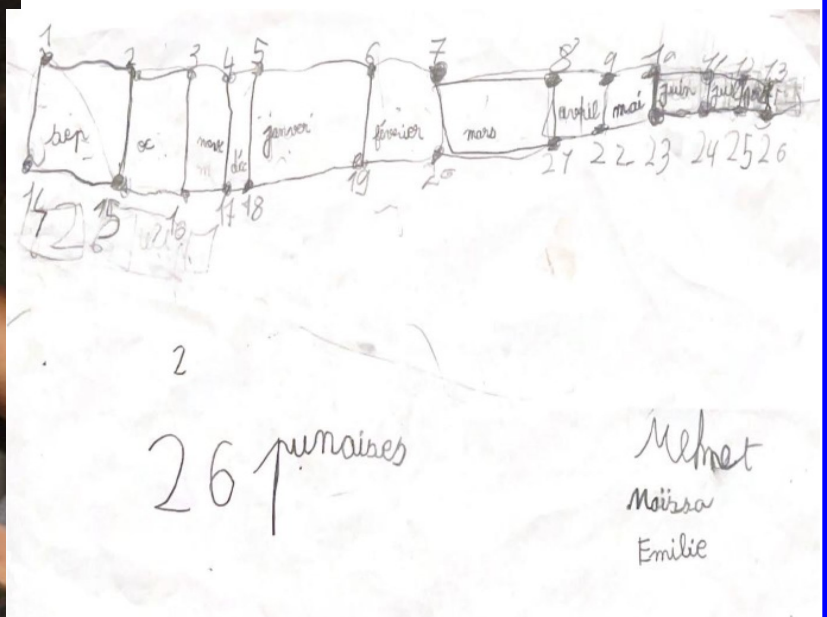 1 2 3 4 5 6 7 8 9 10 11 12 13
sep oc nove déc janver féverier mars avril mai juin juil
14 15 16 17 18 19 20 21 22 23 24 25 26
2
26 punaises
Mehmet
Maïssa
Emilie